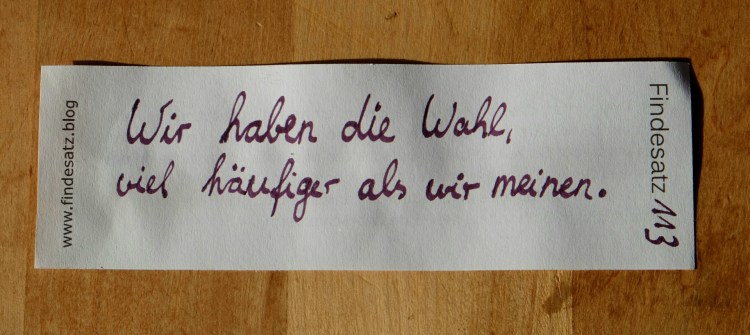 www.findesatz.blog
Wir haben die Wahl,
viel häufiger als wir meinen.
Findesatz 113